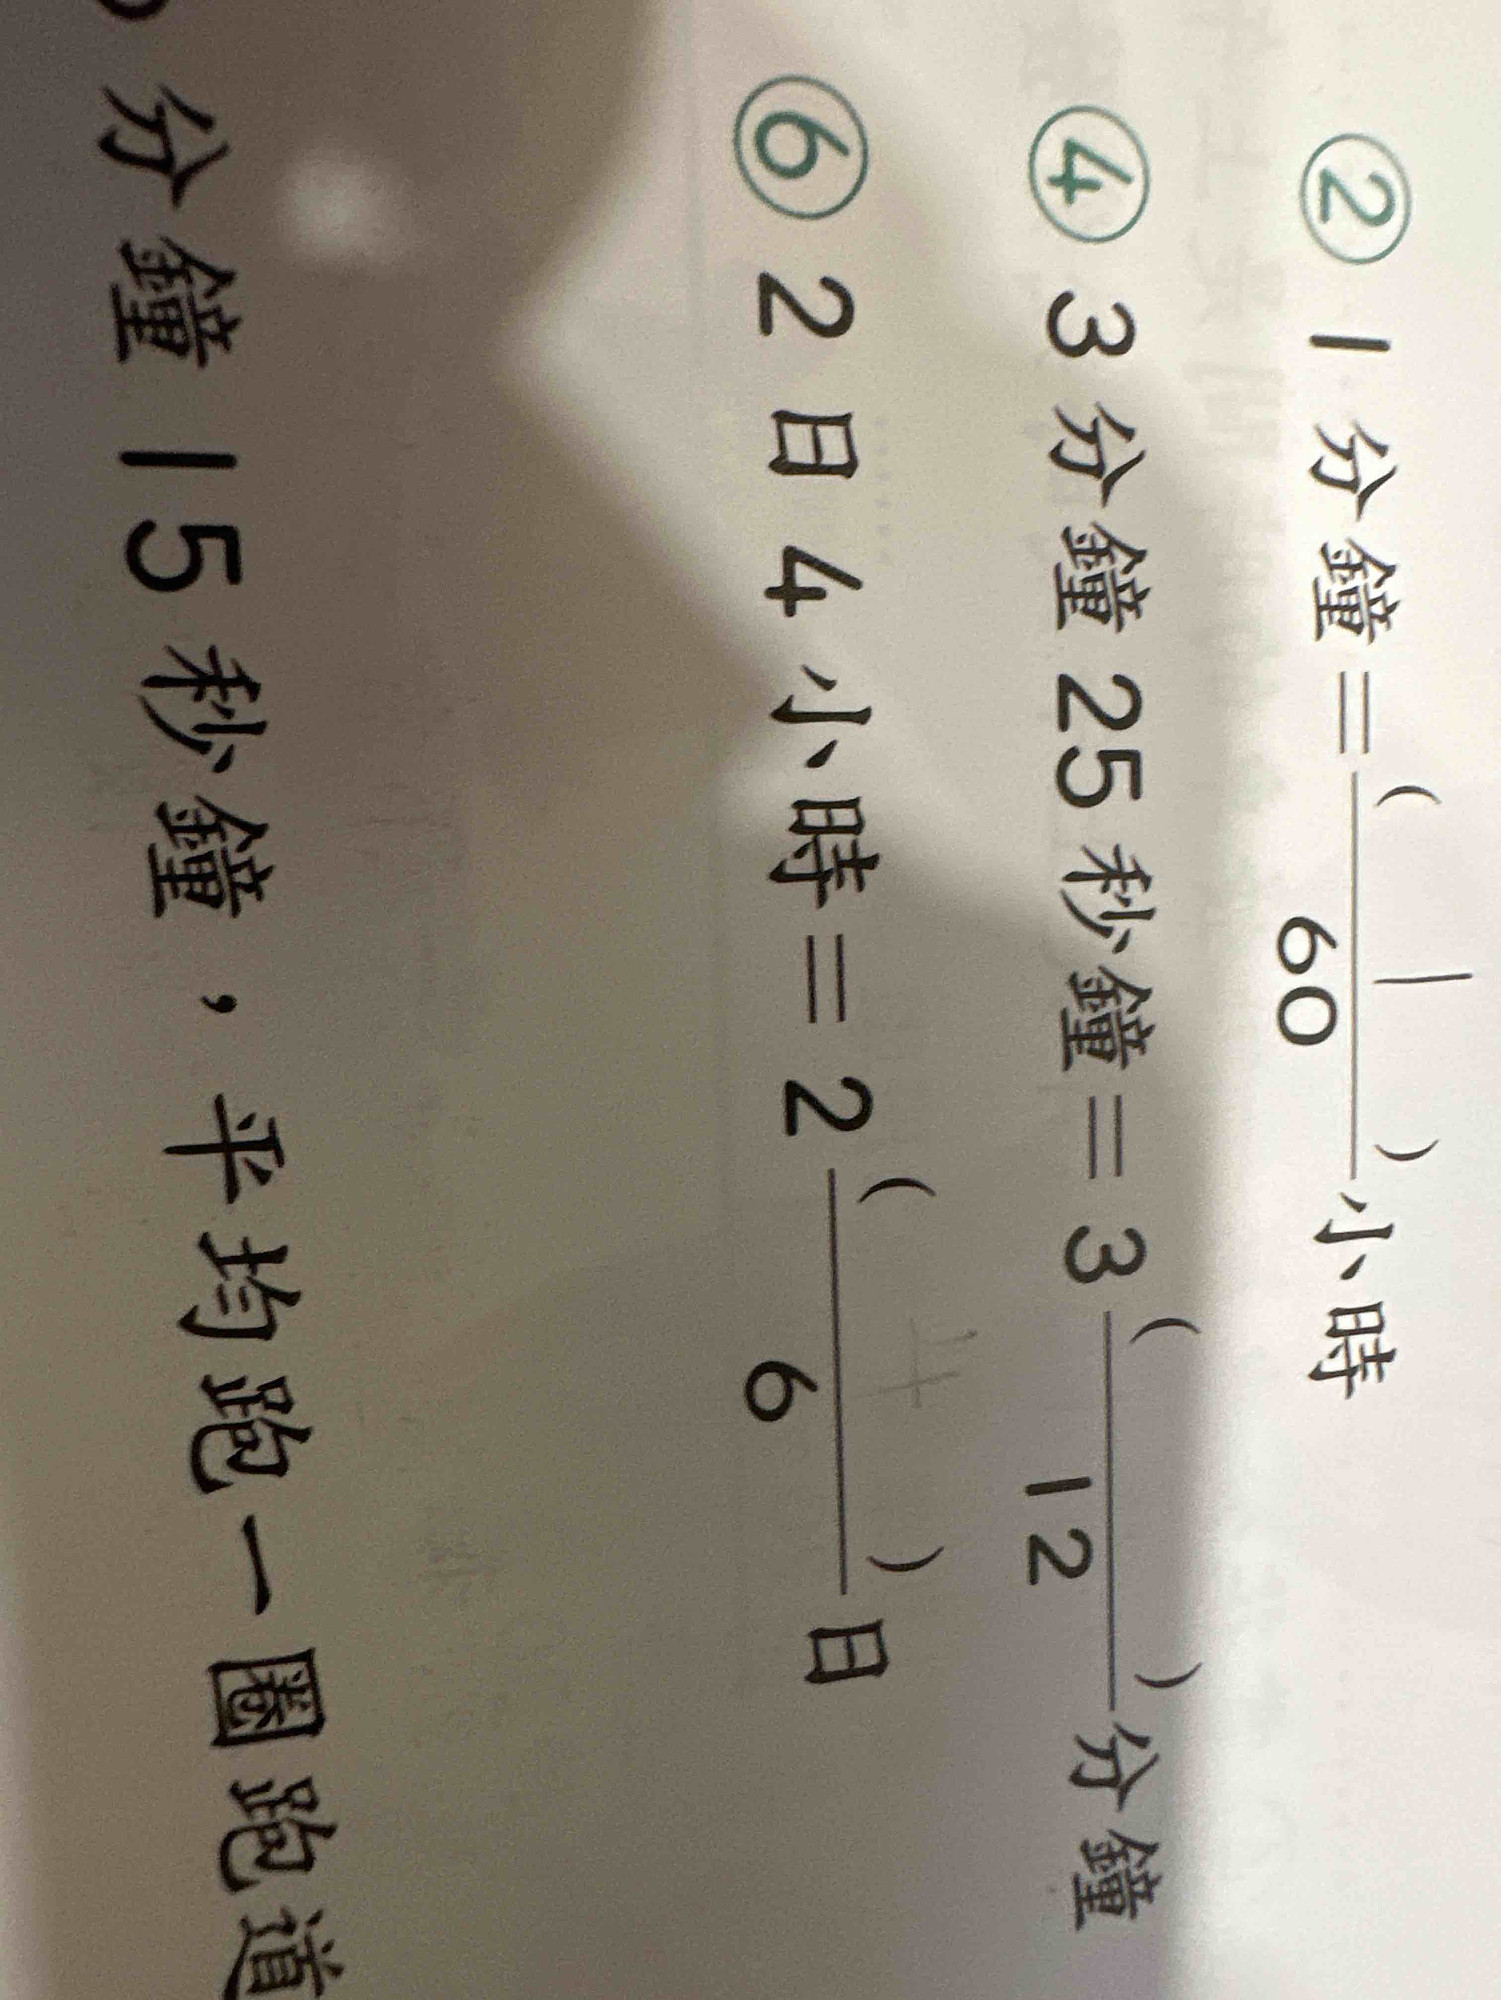 ② 1分鐘=( 1 )/60 小時
④ 3分鐘25秒鐘=3( )/12 分鐘
⑥ 2日4小時=2( )/6 日
分鐘15秒鐘，平均跑一圈跑道